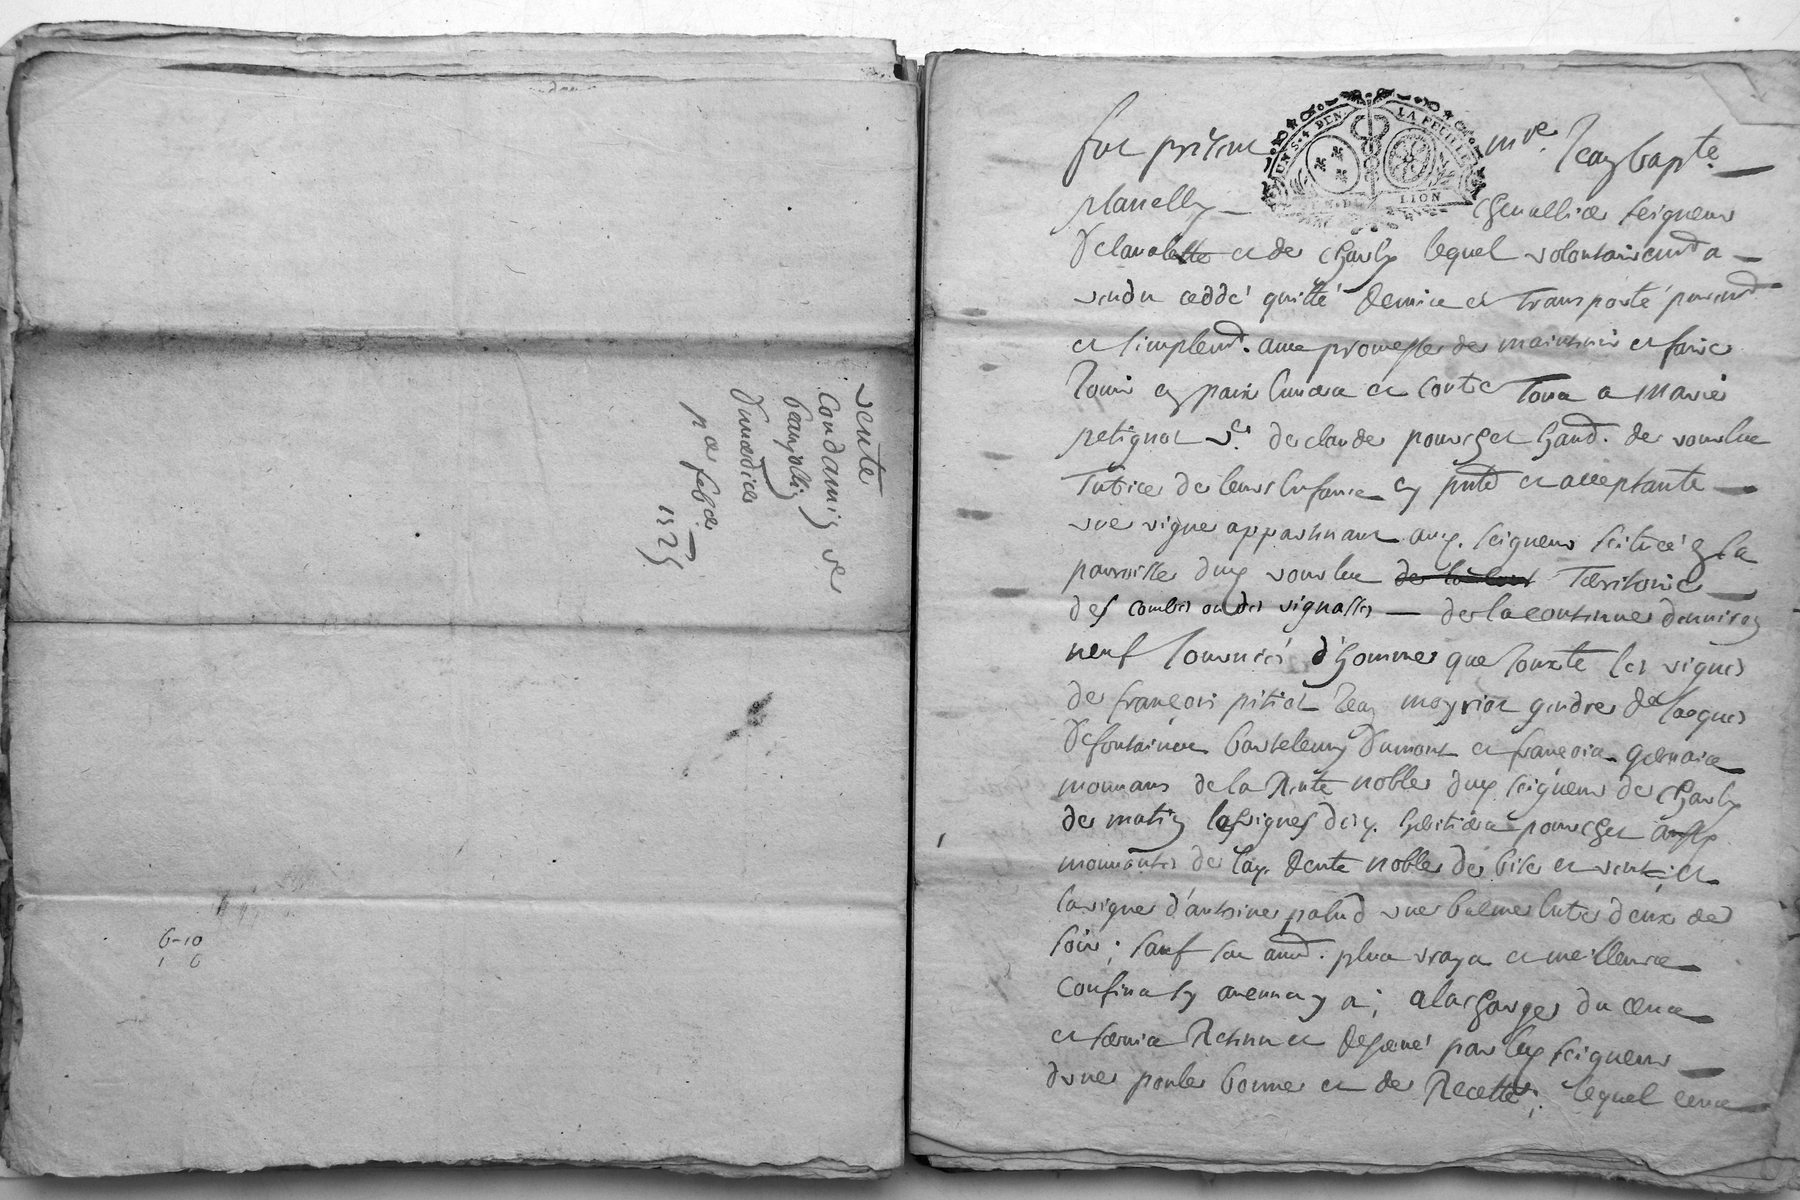 vente
Condamin ve
beaujollin
Dumedicer
1725
6-10
1 6
fut present mre. Jean bapte.
UN S. 4 DEN. LA FEUILLE
LION
planelly chevallier seigneur
De lavalette et de charly lequel volontairemt a
vendu ceddé quitté demis et transporté puremt
et simplemt. avec promesse de maintenir et faire
Jouir en paix envers et contre Tous a Marie
petignot ve. de claude pourchet hand. de vourles
Tutrice de leurs enfans cy pnte et acceptante
une vigne appartenant aud. seigneur scituée en la
parroisse dud vourles Territoire
des combes ou des vignasses de la contenue d'environ
neuf Journées d'homme que Jouxte les vignes
de françois pitiot Jean moyriat gendre de Jacques
De fontaine bartelemy Dumont et françois gervais
mouvans de la Rente noble dud seigneur de charly
de matin les vignes desd. heritiers pourchet
mouvantes de lad. Rente noble de bise et vent; et
la vigne d'antoine palud une balme entre deux de
soir; sauf ses aud. plus vrays et meilleurs
confins sy aucuns y a; a la charge du cens
et servis Retenu et Reservé par led seigneur
d'une poule bonne et de Recette; lequel cens